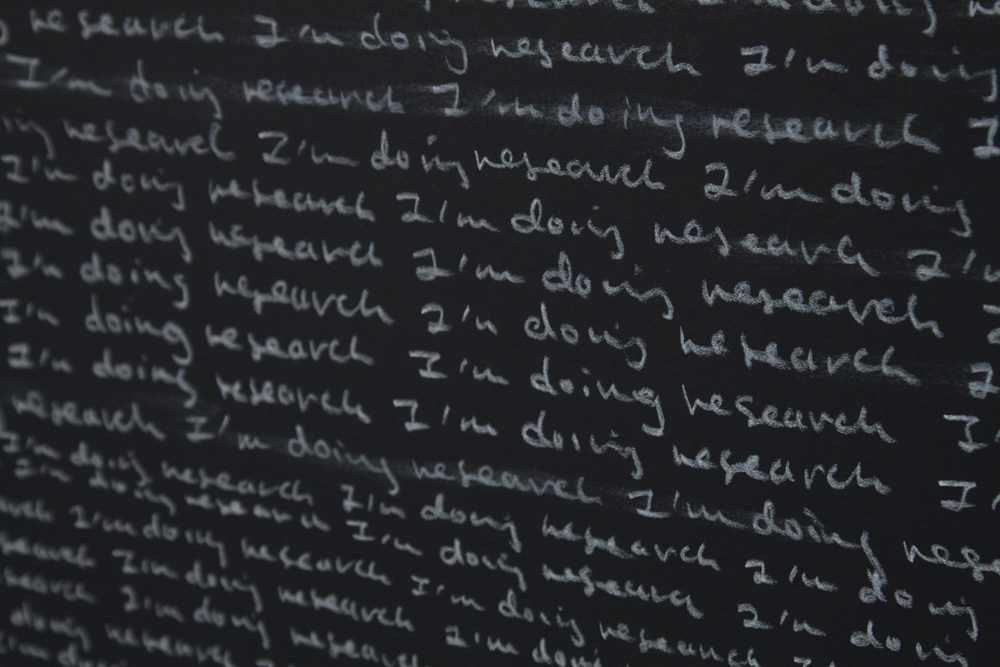 research I'm doing research I'm doing
I'm doing research I'm doing research I
ing research I'm doing research I'm doing
I'm doing research I'm doing research I'm
I'm doing research I'm doing research
I'm doing research I'm doing research
I'm doing research I'm doing research I
I'm doing research I'm doing research I
research I'm doing research I'm doing res
I'm doing research I'm doing research I'm doing
I'm doing research I'm doing research I'm doing
arch I'm doing research I'm doing research
search I'm doing research I'm doing research
search I'm doing research
doing research